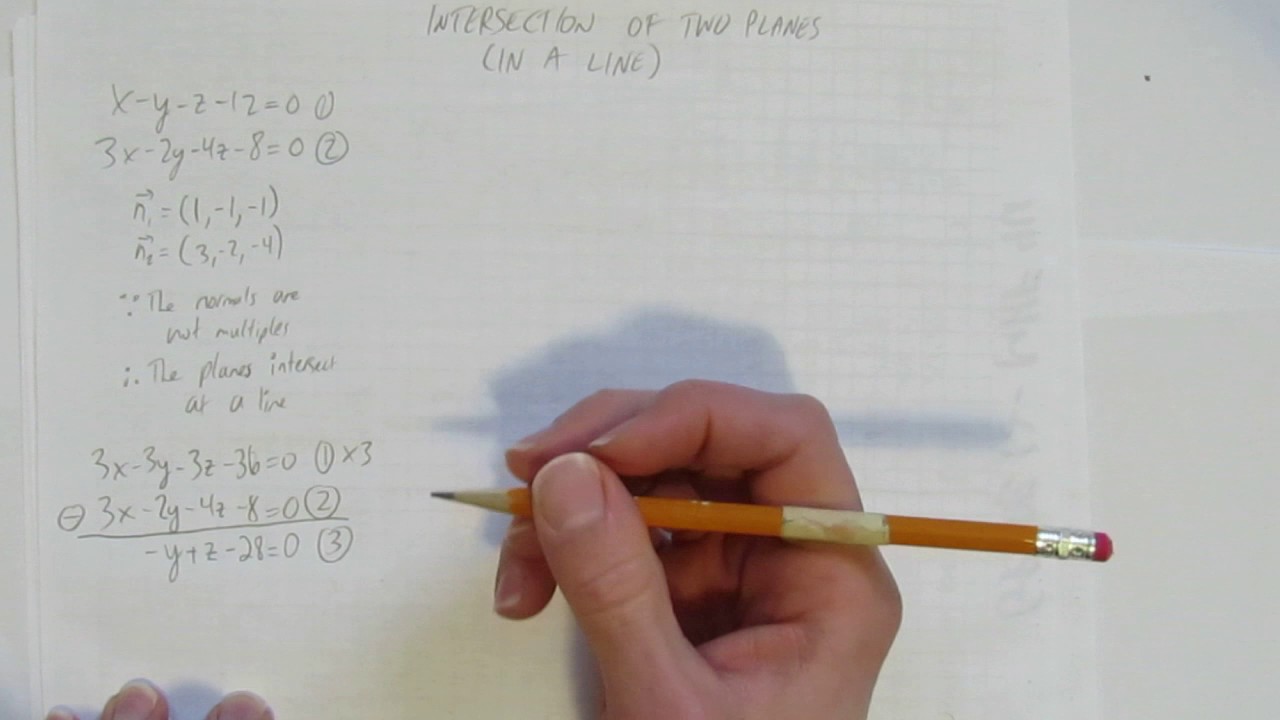 INTERSECTION OF TWO PLANES
(IN A LINE)
x-y-z-12=0 ①
3x-2y-4z-8=0 ②
n⃗₁=(1,-1,-1)
n⃗₂=(3,-2,-4)
∵ The normals are
not multiples
∴ The planes intersect
at a line
3x-3y-3z-36=0 ①×3
⊖ 3x-2y-4z-8=0 ②
-y+z-28=0 ③